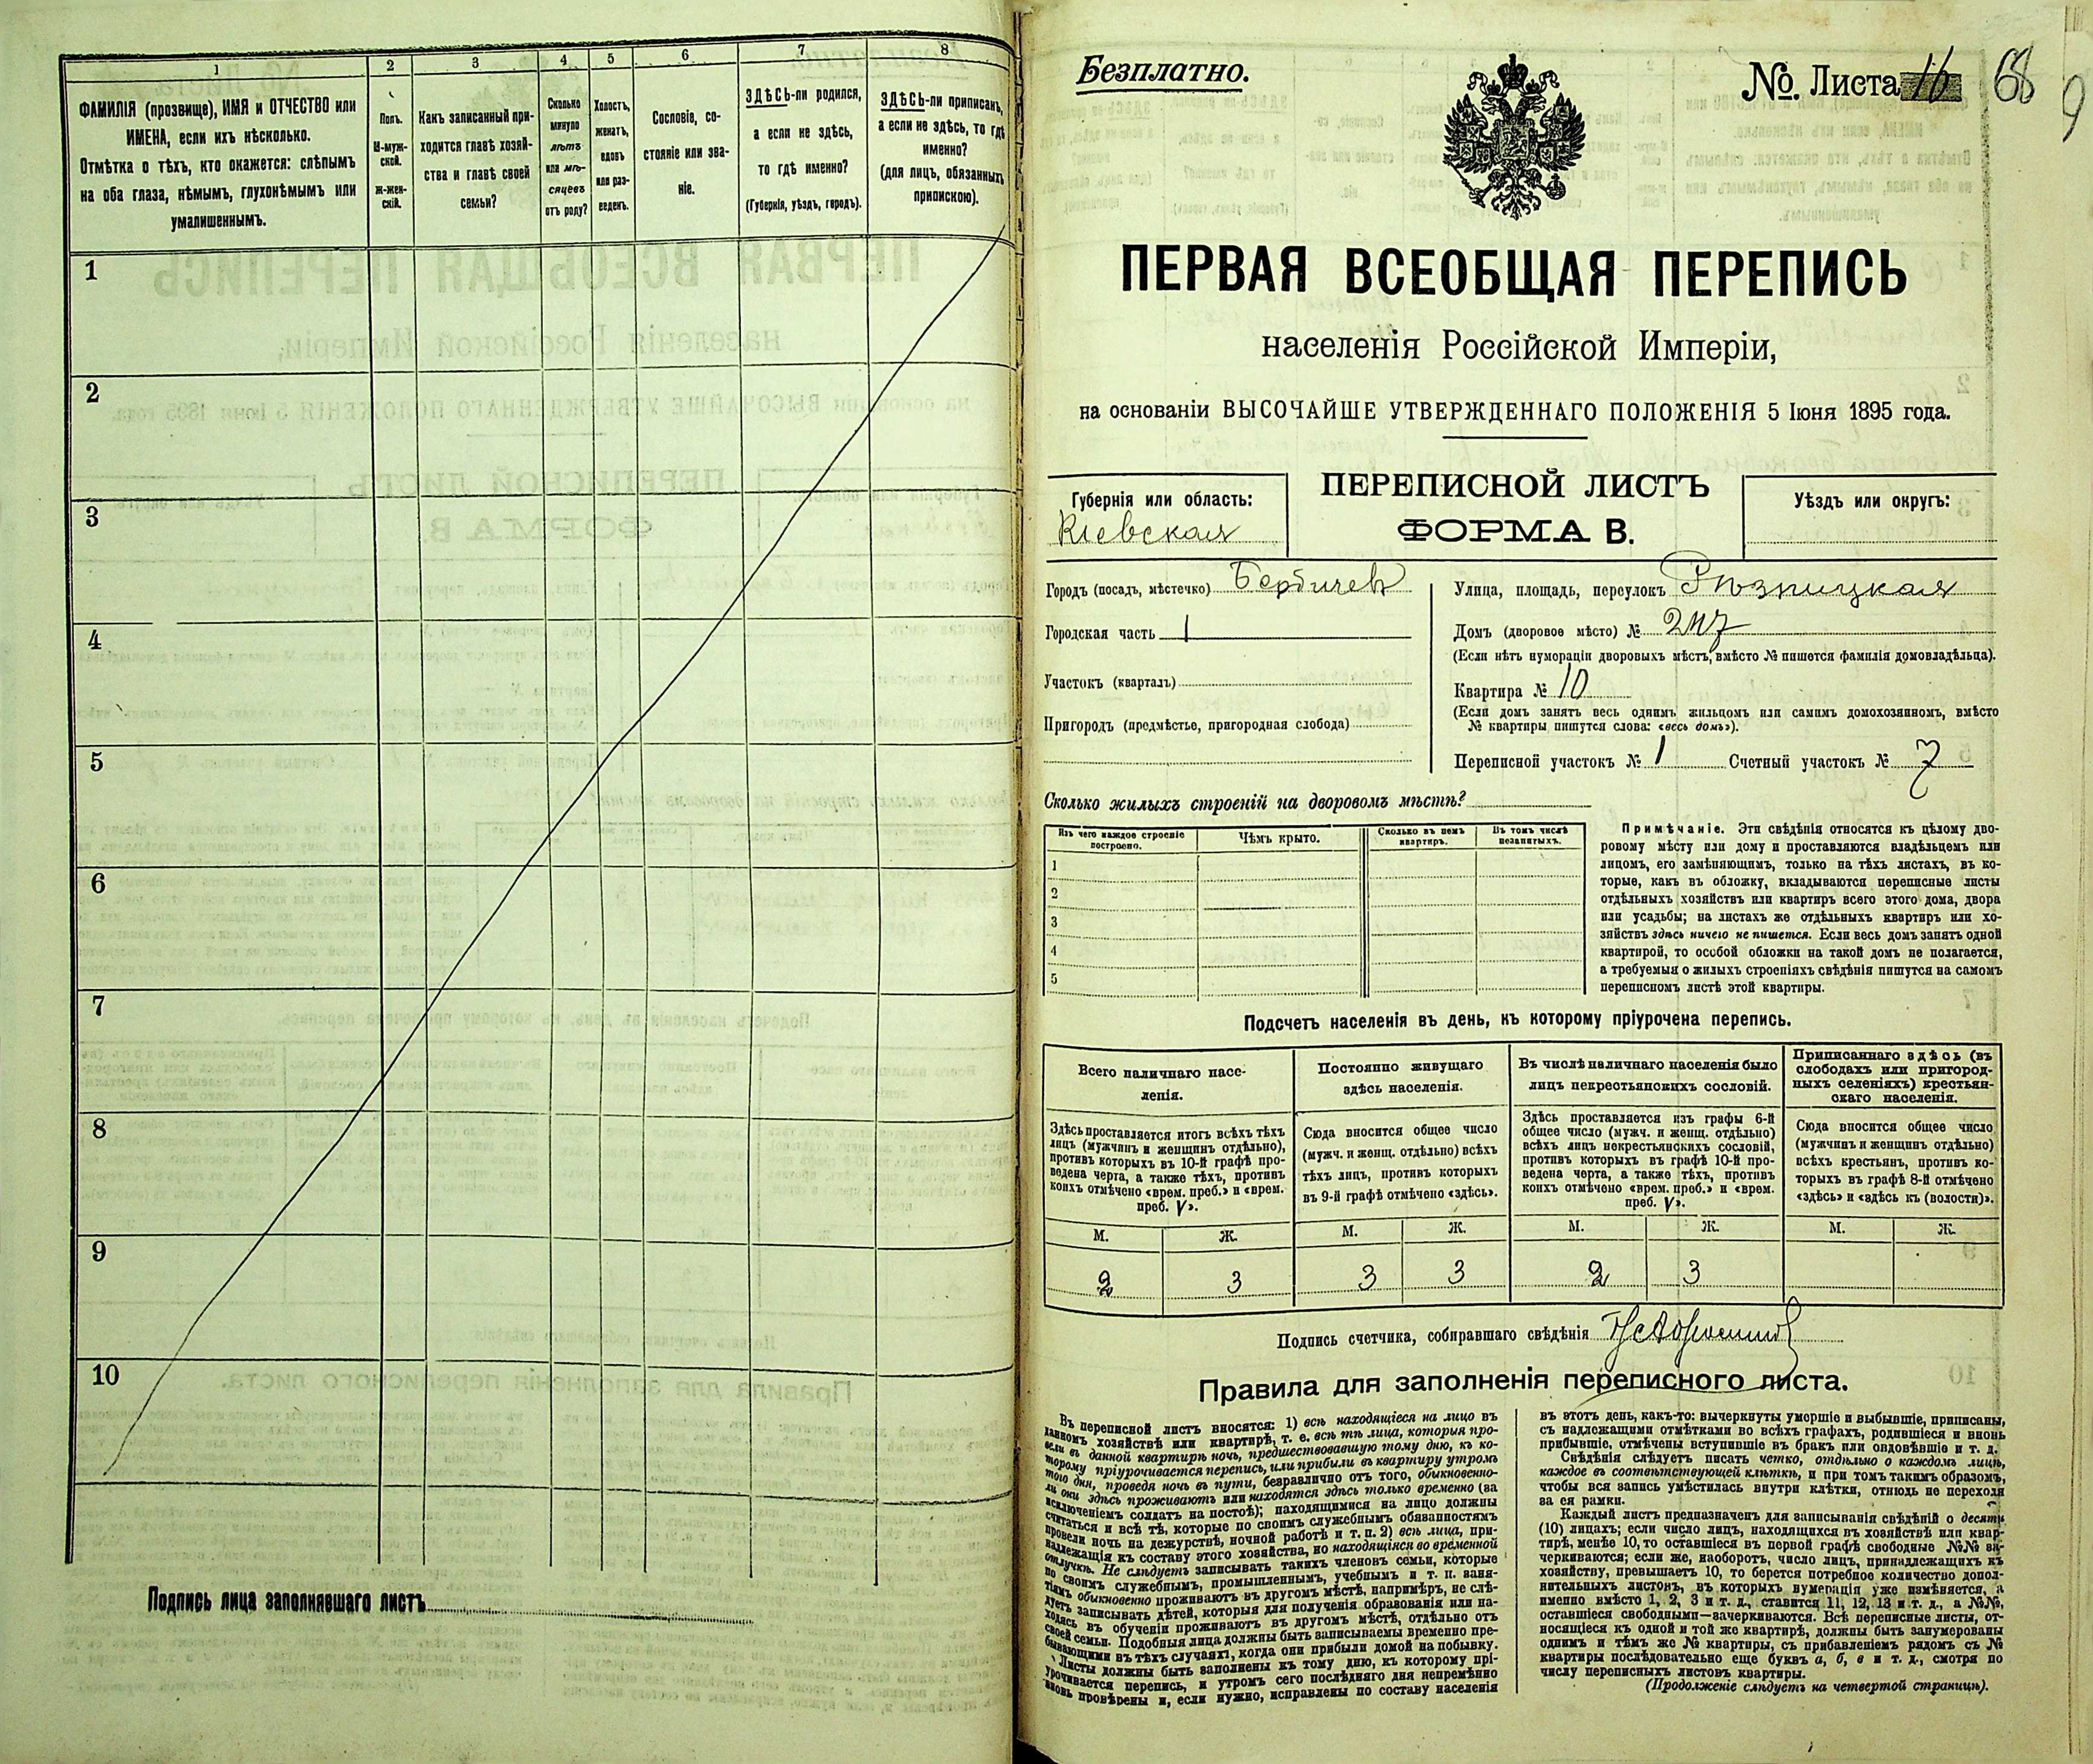 1
2
3
4
5
6
7
8
ФАМИЛІЯ (прозвище), ИМЯ и ОТЧЕСТВО или
ИМЕНА, если ихъ нѣсколько.
Отмѣтка о тѣхъ, кто окажется: слѣпымъ
на оба глаза, нѣмымъ, глухонѣмымъ или
умалишеннымъ.
Полъ.
М-муж-
ской.
Ж-жен-
скій.
Какъ записанный при-
ходится главѣ хозяй-
ства и главѣ своей
семьи?
Сколько
минуло
лѣтъ
или мѣ-
сяцевъ
отъ роду?
Холостъ,
женатъ,
вдовъ
или раз-
веденъ.
Сословіе, со-
стояніе или зва-
ніе.
ЗДѢСЬ-ли родился,
а если не здѣсь,
то гдѣ именно?
(Губернія, уѣздъ, городъ).
ЗДѢСЬ-ли приписанъ,
а если не здѣсь, то гдѣ
именно?
(для лицъ, обязанныхъ
припискою).
1
2
3
4
5
6
7
8
9
10
Подпись лица заполнявшаго листъ
Безплатно.
№. Листа 16 68
9
ПЕРВАЯ ВСЕОБЩАЯ ПЕРЕПИСЬ
населенія Россійской Имперіи,
на основаніи ВЫСОЧАЙШЕ УТВЕРЖДЕННАГО ПОЛОЖЕНІЯ 5 Іюня 1895 года.
Губернія или область:
Кіевская
ПЕРЕПИСНОЙ ЛИСТЪ
ФОРМА В.
Уѣздъ или округъ:
Городъ (посадъ, мѣстечко) Бердичевъ
Городская часть 1
Участокъ (кварталъ)
Пригородъ (предмѣстье, пригородная слобода)
Улица, площадь, переулокъ Рѣзницкая
Домъ (дворовое мѣсто) №
(Если нѣтъ нумераціи дворовыхъ мѣстъ, вмѣсто № пишется фамилія домовладѣльца).
Квартира № 10
(Если домъ занятъ весь однимъ жильцомъ или самимъ домохозяиномъ, вмѣсто
№ квартиры пишутся слова: «весь домъ»).
Переписной участокъ № 1 Счетный участокъ № 7
Сколько жилыхъ строеній на дворовомъ мѣстѣ?
Изъ чего каждое строеніе
построено.
Чѣмъ крыто.
Сколько въ немъ
квартиръ.
Въ томъ числѣ
незанятыхъ.
1
2
3
4
5
Примѣчаніе. Эти свѣдѣнія относятся къ цѣлому дво-
ровому мѣсту или дому и проставляются владѣльцемъ или
лицомъ, его замѣняющимъ, только на тѣхъ листахъ, въ ко-
торые, какъ въ обложку, вкладываются переписные листы
отдѣльныхъ хозяйствъ или квартиръ всего этого дома, двора
или усадьбы; на листахъ же отдѣльныхъ квартиръ или хо-
зяйствъ здѣсь ничего не пишется. Если весь домъ занятъ одной
квартирой, то особой обложки на такой домъ не полагается,
а требуемыя о жилыхъ строеніяхъ свѣдѣнія пишутся на самомъ
переписномъ листѣ этой квартиры.
Подсчетъ населенія въ день, къ которому пріурочена перепись.
Всего наличнаго насе-
ленія.
Постоянно живущаго
здѣсь населенія.
Въ числѣ наличнаго населенія было
лицъ некрестьянскихъ сословій.
Приписаннаго здѣсь (въ
слободахъ или пригород-
ныхъ селеніяхъ) крестьян-
скаго населенія.
Здѣсь проставляется итогъ всѣхъ тѣхъ
лицъ (мужчинъ и женщинъ отдѣльно),
противъ которыхъ въ 10-й графѣ про-
ведена черта, а также тѣхъ, противъ
коихъ отмѣчено «врем. преб.» и «врем.
преб. V».
Сюда вносится общее число
(мужч. и женщ. отдѣльно) всѣхъ
тѣхъ лицъ, противъ которыхъ
въ 9-й графѣ отмѣчено «здѣсь».
Здѣсь проставляется изъ графы 6-й
общее число (мужч. и женщ. отдѣльно)
всѣхъ лицъ некрестьянскихъ сословій,
противъ которыхъ въ графѣ 10-й про-
ведена черта, а также тѣхъ, противъ
коихъ отмѣчено «врем. преб.» и «врем.
преб. V».
Сюда вносится общее число
(мужчинъ и женщинъ отдѣльно)
всѣхъ крестьянъ, противъ ко-
торыхъ въ графѣ 8-й отмѣчено
«здѣсь» и «здѣсь къ (волости)».
М. Ж. М. Ж. М. Ж. М. Ж.
2 3 3 3 2 3
Подпись счетчика, собиравшаго свѣдѣнія
Правила для заполненія переписного листа.
Въ переписной листъ вносятся: 1) всѣ находящіеся на лицо въ
данномъ хозяйствѣ или квартирѣ, т. е. всѣ тѣ лица, которыя про-
вели въ данной квартирѣ ночь, предшествовавшую тому дню, къ ко-
торому пріурочивается перепись, или прибыли въ квартиру утромъ
того дня, проведя ночь въ пути, безразлично отъ того, обыкновенно-
ли они здѣсь проживаютъ или находятся здѣсь только временно (за
исключеніемъ солдатъ на постоѣ); находящимися на лицо должны
считаться и всѣ тѣ, которые по своимъ служебнымъ обязанностямъ
провели ночь на дежурствѣ, ночной работѣ и т. п. 2) всѣ лица, при-
надлежащія къ составу этого хозяйства, но находящіяся во временной
отлучкѣ. Не слѣдуетъ записывать такихъ членовъ семьи, которые
по своимъ служебнымъ, промышленнымъ, учебнымъ и т. п. заня-
тіямъ обыкновенно проживаютъ въ другомъ мѣстѣ, напримѣръ, не слѣ-
дуетъ записывать дѣтей, которыя для полученія образованія или на-
ходясь въ обученіи проживаютъ въ другомъ мѣстѣ, отдѣльно отъ
своей семьи. Подобныя лица должны быть записываемы временно пре-
бывающими въ тѣхъ случаяхъ, когда они прибыли домой на побывку.
Листы должны быть заполнены къ тому дню, къ которому прі-
урочивается перепись, и утромъ сего послѣдняго дня непремѣнно
вновь провѣрены и, если нужно, исправлены по составу населенія
въ этотъ день, какъ-то: вычеркнуты умершіе и выбывшіе, приписаны,
съ надлежащими отмѣтками во всѣхъ графахъ, родившіеся и вновь
прибывшіе, отмѣчены вступившіе въ бракъ или овдовѣвшіе и т. д.
Свѣдѣнія слѣдуетъ писать четко, отдѣльно о каждомъ лицѣ,
каждое въ соотвѣтствующей клѣткѣ, и при томъ такимъ образомъ,
чтобы вся запись умѣстилась внутри клѣтки, отнюдь не переходя
за ея рамки.
Каждый листъ предназначенъ для записыванія свѣдѣній о десяти
(10) лицахъ; если число лицъ, находящихся въ хозяйствѣ или квар-
тирѣ, менѣе 10, то оставшіеся въ первой графѣ свободные №№ за-
черкиваются; если же, наоборотъ, число лицъ, принадлежащихъ къ
хозяйству, превышаетъ 10, то берется потребное количество допол-
нительныхъ листовъ, въ которыхъ нумерація уже измѣняется, а
именно вмѣсто 1, 2, 3 и т. д., ставится 11, 12, 13 и т. д., а №№,
оставшіеся свободными—зачеркиваются. Всѣ переписные листы, от-
носящіеся къ одной и той же квартирѣ, должны быть занумерованы
однимъ и тѣмъ же № квартиры, съ прибавленіемъ рядомъ съ №
квартиры послѣдовательно еще буквъ а, б, в и т. д., смотря по
числу переписныхъ листовъ квартиры.
(Продолженіе слѣдуетъ на четвертой страницѣ).